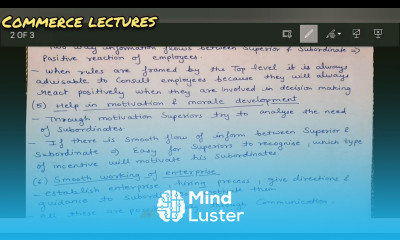 COMMERCE LECTURES
2 OF 3
Two way information flows between Superior & Subordinate ⇒
Positive reaction of employees.
- When rules are framed by the Top level it is always
advisable to Consult employees because they will always
react positively when they are involved in decision making
(5) Help in motivation & morale development
- Through motivation Superiors try to analyse the need
of Subordinates.
- If there is Smooth flow of inform between Superior &
Subordinate ⇒ Easy for Superiors to recognise, which type
of incentive will motivate his Subordinates.
(6) Smooth working of enterprise
- Establish enterprise, hiring process, give directions &
guidance to Subordinates, motivate them
all these are through Communication.
Mind
Luster